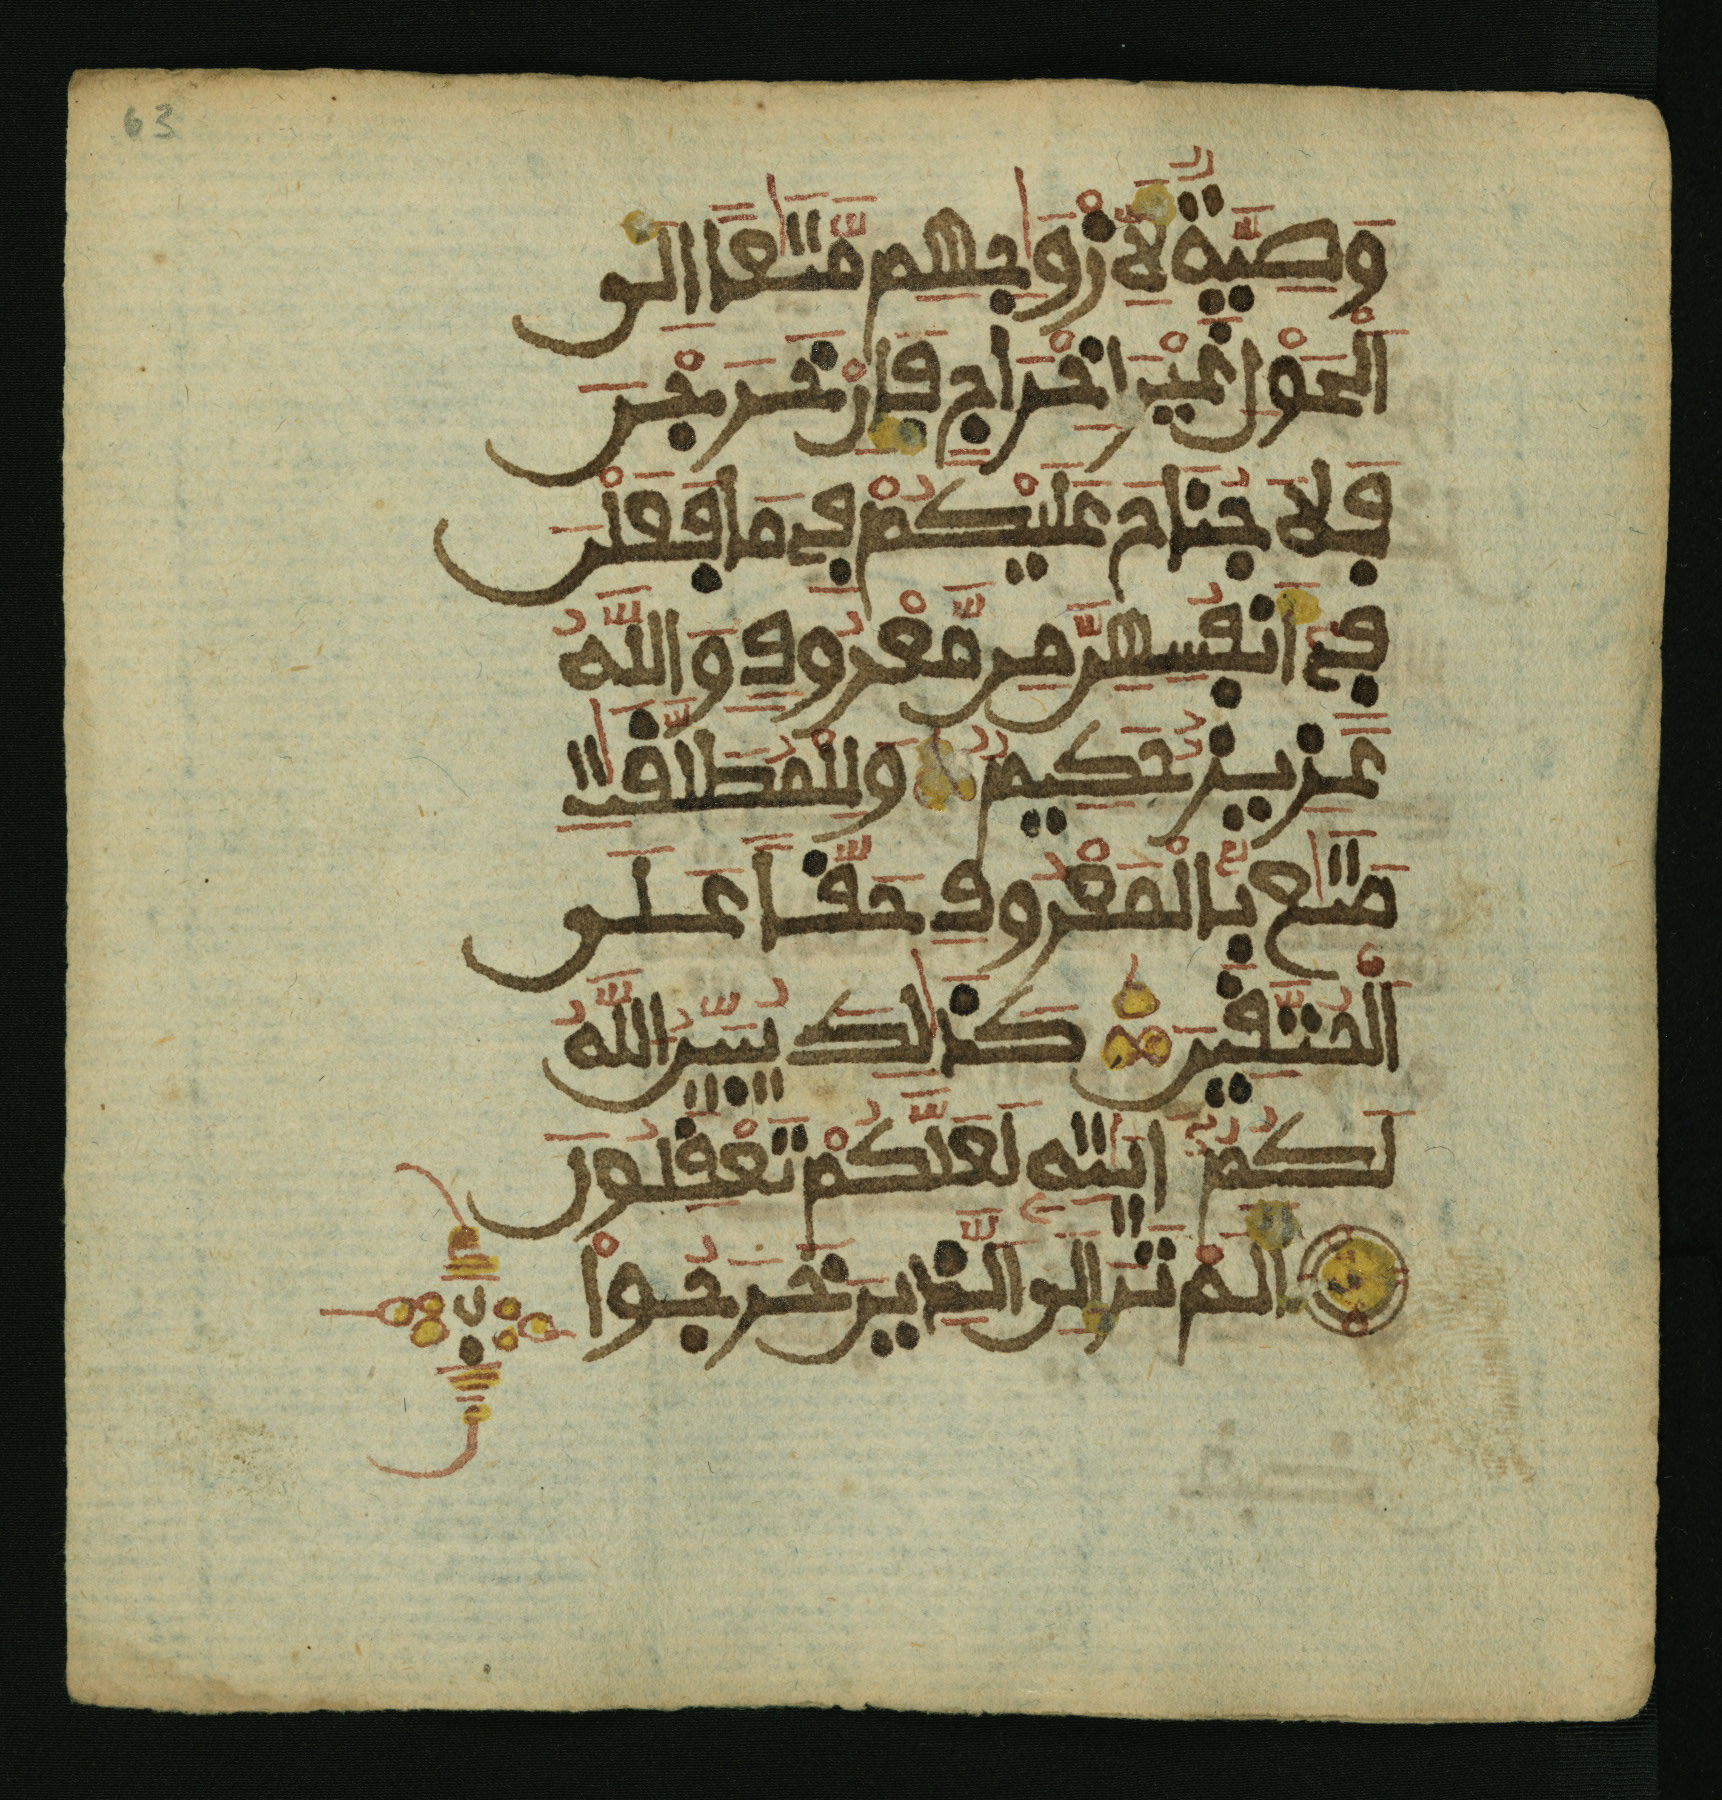 63
وَصِيَّةٌ لِأَزْوَٰجِهِم مَّتَٰعًا إِلَى
اَلْحَوْلِ غَيْرَ إِخْرَاجٍ فَإِنْ خَرَجْنَ
فَلَا جُنَاحَ عَلَيْكُمْ فِي مَا فَعَلْنَ
فِي أَنفُسِهِنَّ مِن مَّعْرُوفٍ وَاللَّهُ
عَزِيزٌ حَكِيمٌ وَلِلْمُطَلَّقَٰتِ
مَتَٰعٌ بِالْمَعْرُوفِ حَقًّا عَلَى
اَلْمُتَّقِينَ كَذَٰلِكَ يُبَيِّنُ اللَّهُ
لَكُمُ ءَايَٰتِهِ لَعَلَّكُمْ تَعْقِلُونَ
أَلَمْ تَرَ إِلَى الَّذِينَ خَرَجُوا